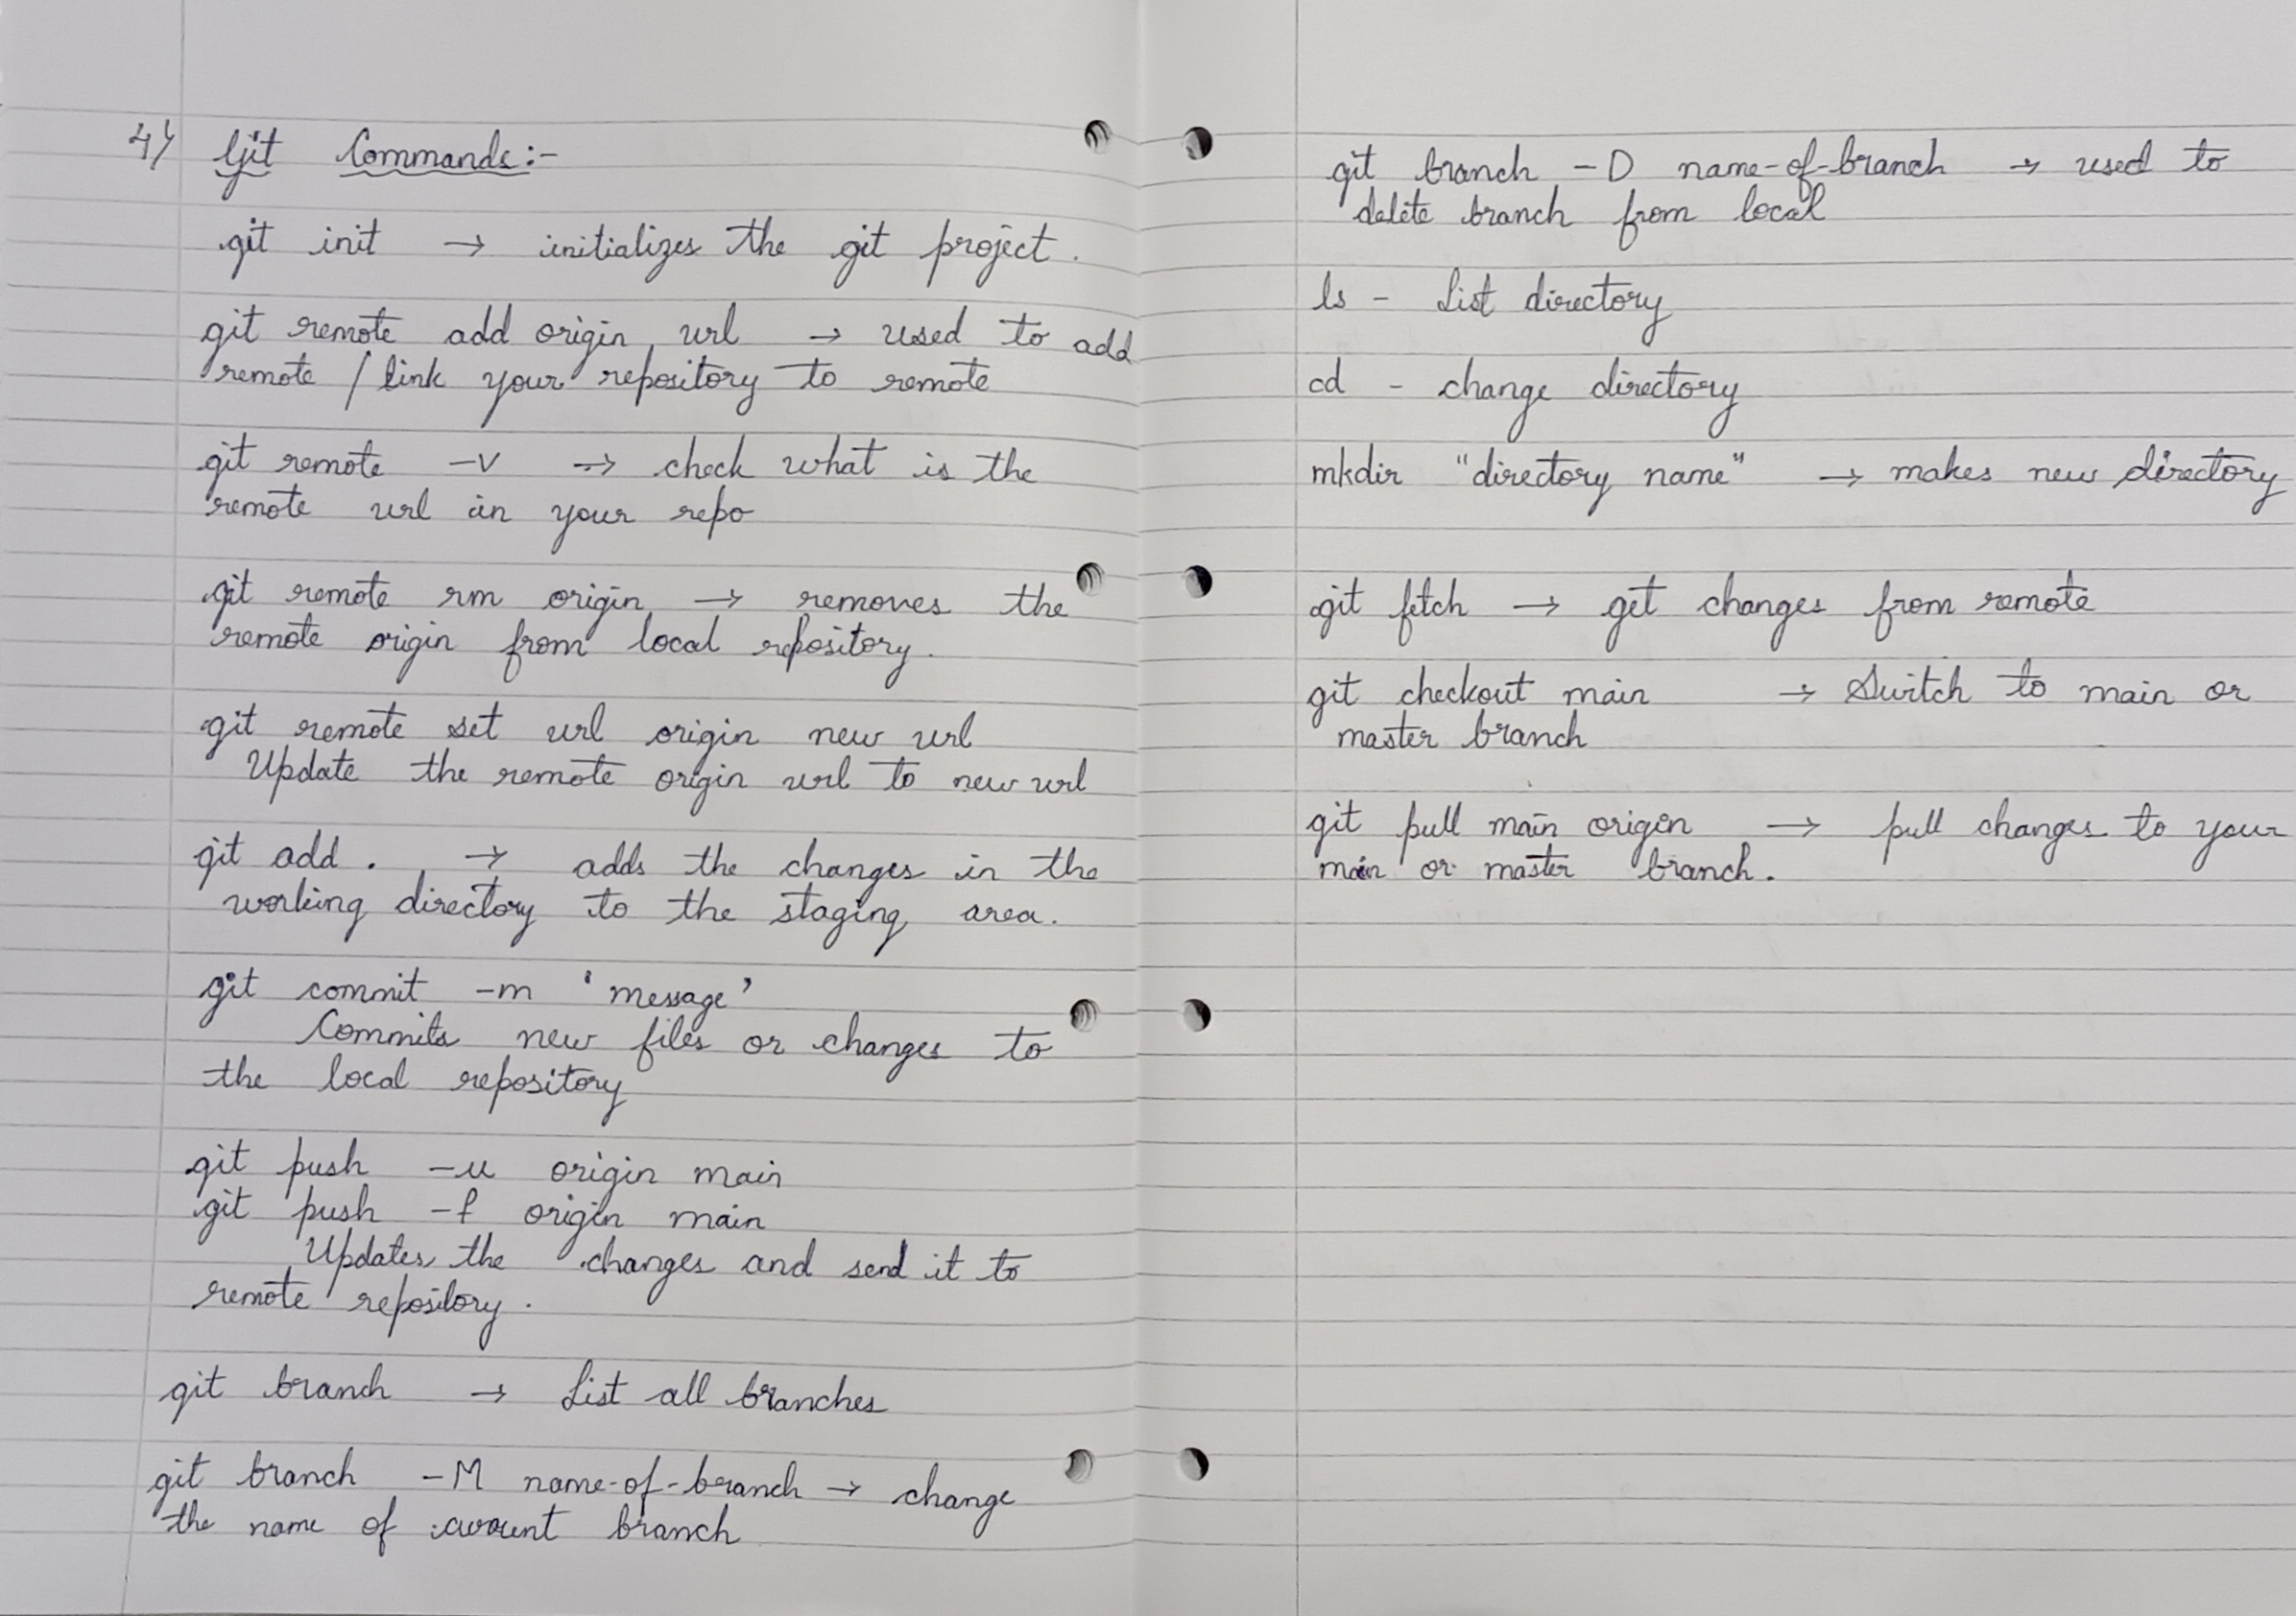 4) Git Commands:-
git init → initializes the git project.
git remote add origin url → used to add
remote / link your repository to remote
git remote -v → check what is the
remote url in your repo
git remote rm origin → removes the
remote origin from local repository.
git remote set url origin new url
Update the remote origin url to new url
git add . → adds the changes in the
working directory to the staging area.
git commit -m 'message'
Commits new files or changes to
the local repository
git push -u origin main
git push -f origin main
Updates the changes and send it to
remote repository.
git branch → List all branches
git branch -M name-of-branch → change
the name of current branch
git branch -D name-of-branch → used to
delete branch from local
ls - List directory
cd - change directory
mkdir "directory name" → makes new directory
git fetch → get changes from remote
git checkout main → Switch to main or
master branch
git pull main origin → pull changes to your
main or master branch.